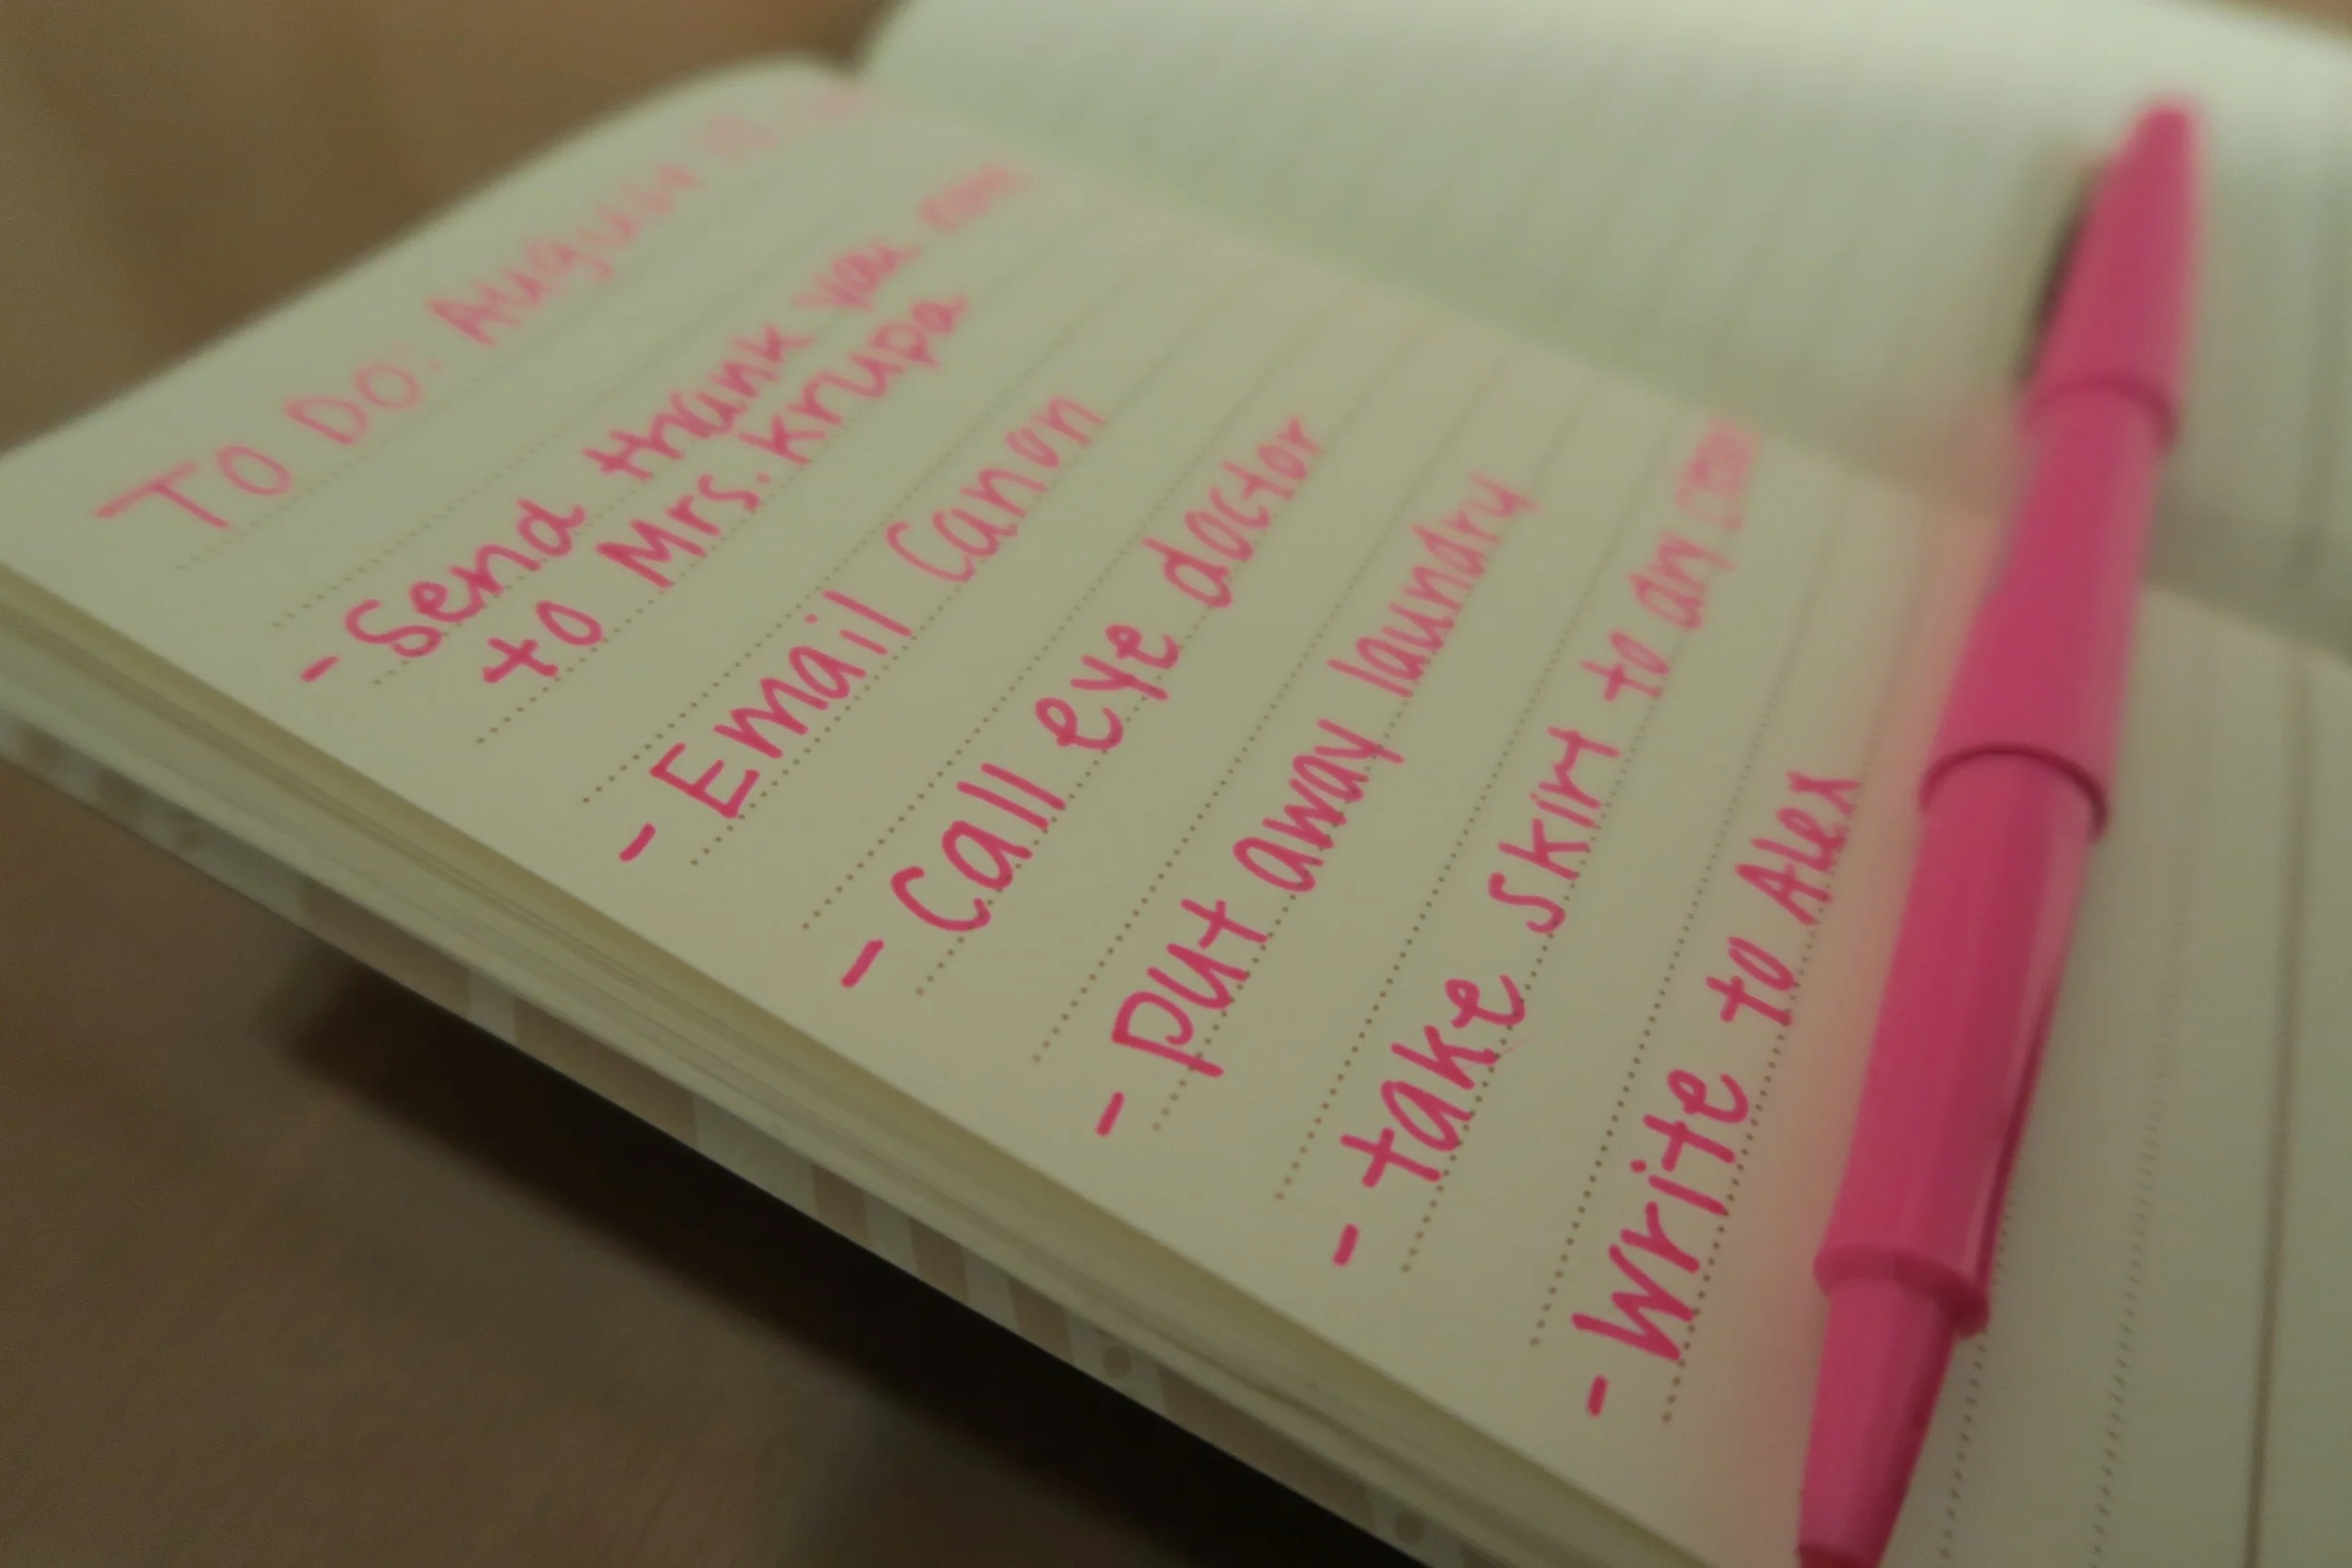 TO DO: August
- Send thank you
to Mrs. Krupa
- Email Canon
- Call eye doctor
- put away laundry
- take skirt to dry
- Write to Alex